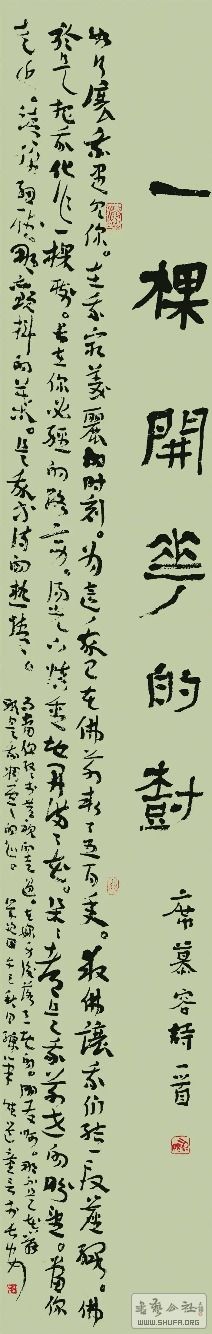 一棵開花的樹
席慕容詩一首
如何讓我遇见你。在我最美麗的时刻。为這我已在佛前求了五百年。求佛讓我们结一段塵緣。佛
於是把我化作一棵树。长在你必經的路旁。陽光下慎重地開滿了花。朵朵都是我前世的盼望。當你
走近。請你细听。那颤抖的葉。是我等待的热情。
而當你终于無视的走過。在你身後落了一地的。朋友啊。那不是花瓣
那是我凋零的心。
書藝公社
WWW.SHUFA.ORG